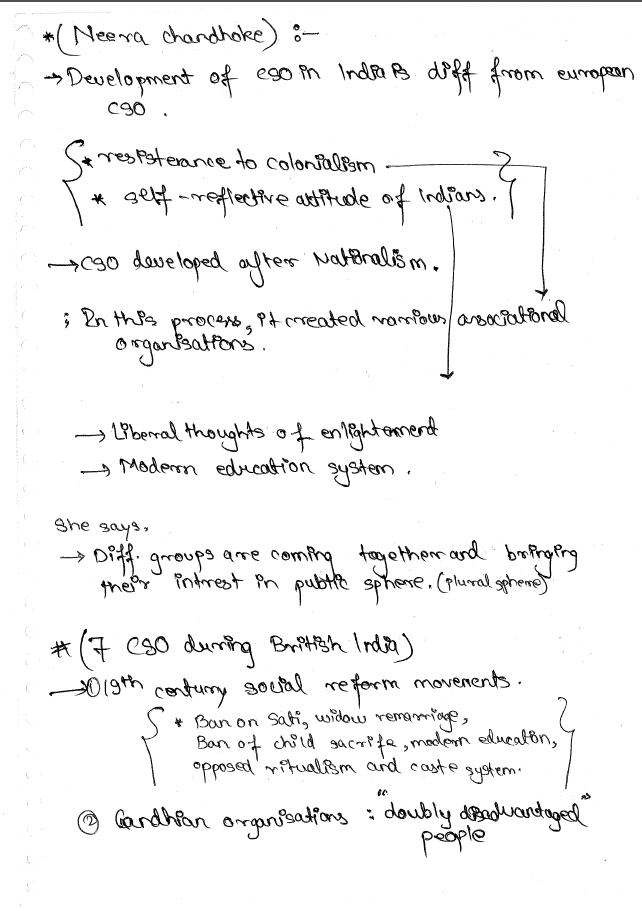 *(Neera chandhoke) :-
→ Development of CSO in India is diff from european
CSO.
* resisterance to colonialism
* self-reflective attitude of Indians.
→ CSO developed after Nationalism.
; In this process, it created various associational
organisations.
→ Liberal thoughts of enlightement
→ Modern education system.
She says,
→ Diff. groups are coming together and bringing
their intrest in public sphere. (plural sphere)
# (7 CSO during British India)
→ ① 19th century social reform movements.
* Ban on Sati, widow remarriage,
Ban of child sacrife, modern education,
opposed ritualism and caste system.
② Gandhian organisations : "doubly disadvantaged"
people